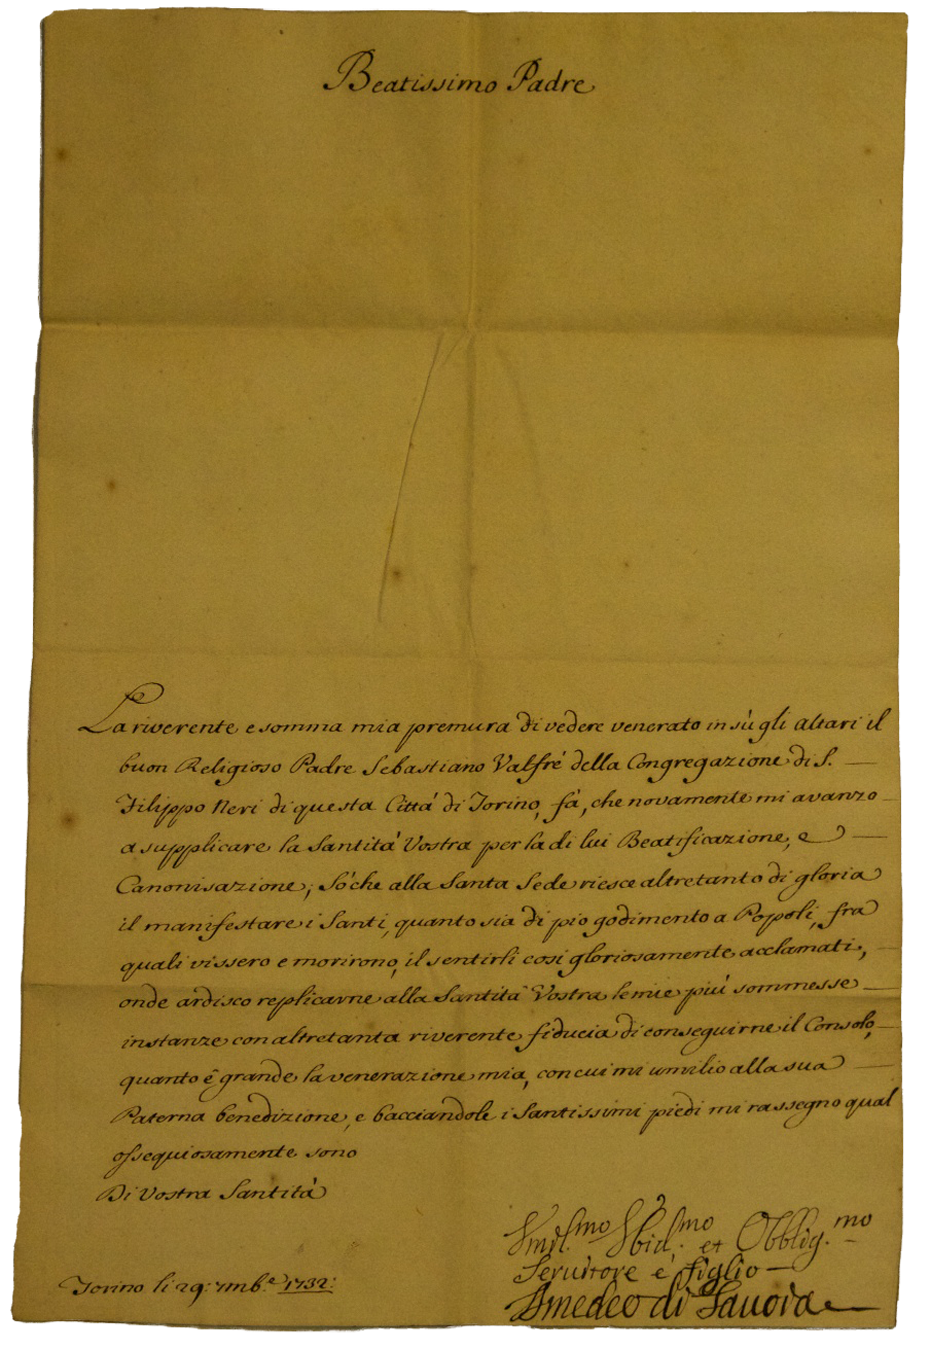 Beatissimo Padre
La riverente e somma mia premura di vedere venerato in sù gli altari il
buon Religioso Padre Sebastiano Valfré della Congregazione di S.
Filippo Neri di questa Cittá di Torino, fà, che novamente mi avanzo
a supplicare la Santità Vostra per la di lui Beatificazione, e
Canonisazione; Só che alla Santa Sede riesce altretanto di gloria
il manifestare i Santi, quanto sia di pio godimento a Popoli, fra
quali vissero e morirono, il sentirli cosi gloriosamente acclamati,
onde ardisco replicarne alla Santità Vostra le mie piú sommesse
instanze con altretanta riverente fiducia di conseguirne il Consolo,
quanto é grande la venerazione mia, con cui mi umilio alla sua
Paterna benedizione, e bacciandole i Santissimi piedi mi rassegno qual
ossequiosamente sono
Di Vostra Santità
Umil.mo Ubid.mo et Obblig.mo
Servitore e figlio
Amedeo di Savoia
Torino li 29: 7mb.e 1732: